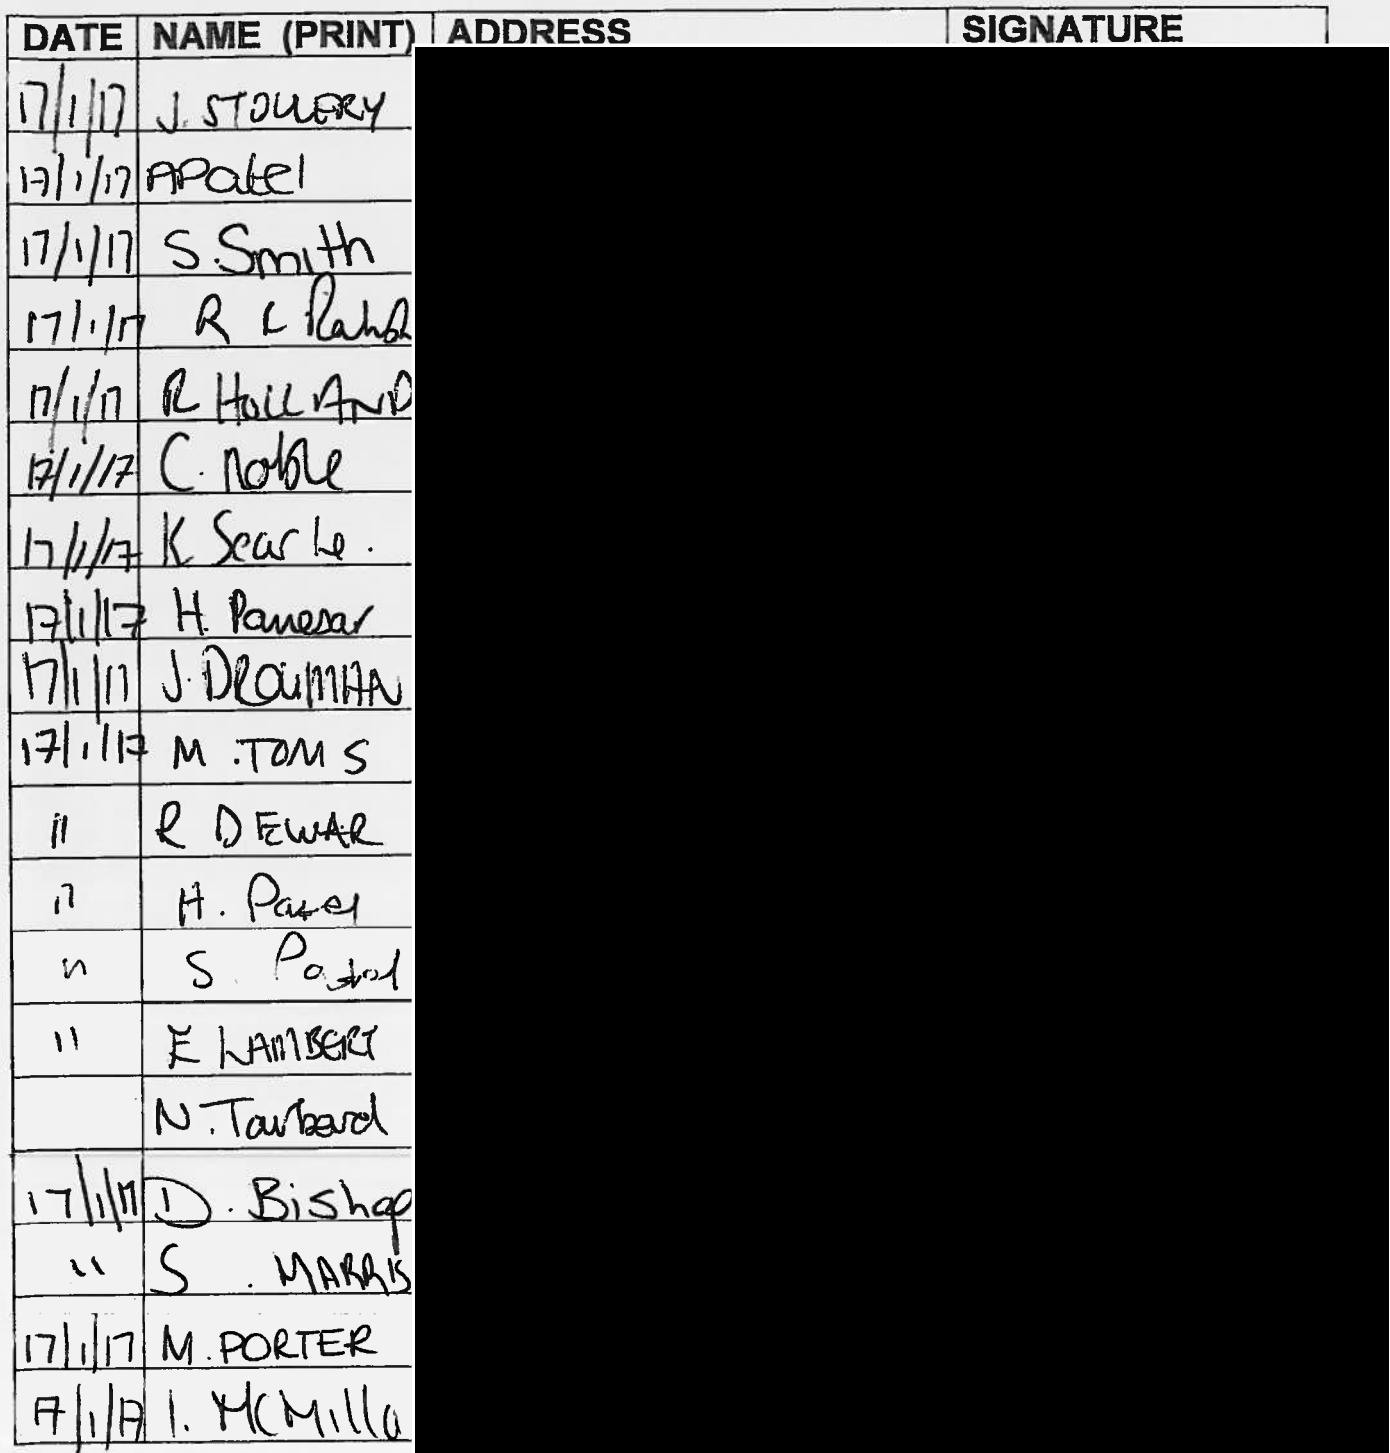 DATE NAME (PRINT) ADDRESS SIGNATURE
17/1/17 J. STOLLERY
17/1/17 A Patel
17/1/17 S. Smith
17/1/17 R L
17/1/17 R HOLLAND
17/1/17 C. Noble
17/1/17 K Searle.
17/1/17 H. Panesar
17/1/17 J.
17/1/17 M. TOMS
" R DEWAR
" H. Patel
" S. Patel
" E LAMBERT
N.
17/1/17 D. Bishop
" S. MARRIS
17/1/17 M. PORTER
17/1/17 I. McMilla